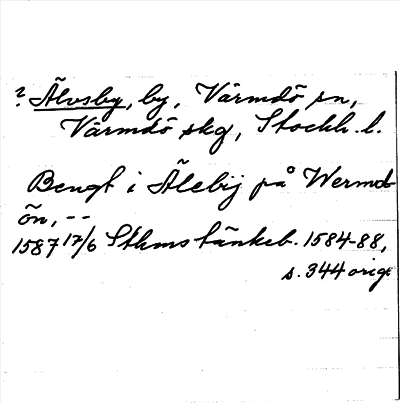 ? Älvsby, by, Värmdö sn,
Värmdö skg, Stockh. l.
Bengt i Älebij på Wermd-
ön, --
1587 12/6 Sthms tänkeb. 1584-88,
s. 344 orig.